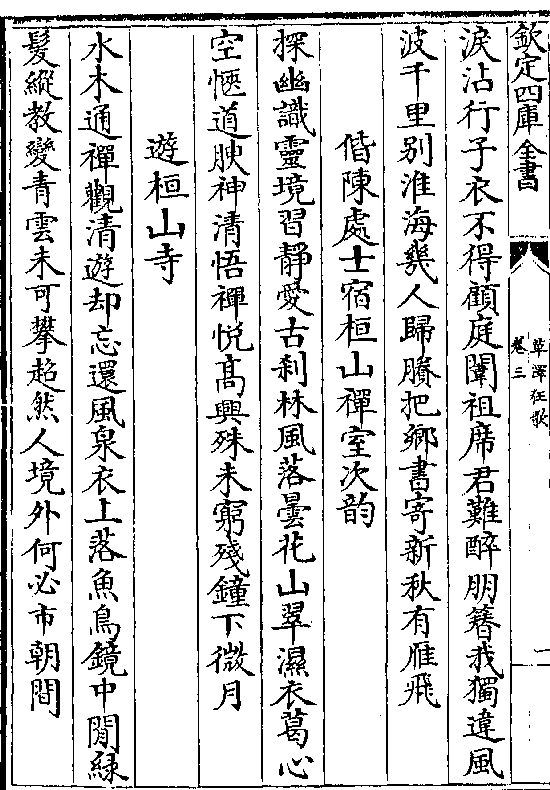 欽定四庫全書
草澤狂歌
卷三
一
淚沾行子衣不得顧庭闈祖席君難醉朋簪我獨違風
波千里别淮海幾人歸賸把鄉書寄新秋有雁飛
偕陳處士宿桓山禪室次韵
探幽識靈境習靜愛古刹林風落曇花山翠濕衣葛心
空愜道腴神清悟禪悦髙興殊未窮殘鐘下微月
遊桓山寺
水木通禪觀清遊却忘還風泉衣上落魚鳥鏡中閒緑
髪縱教變青雲未可攀超然人境外何必市朝間